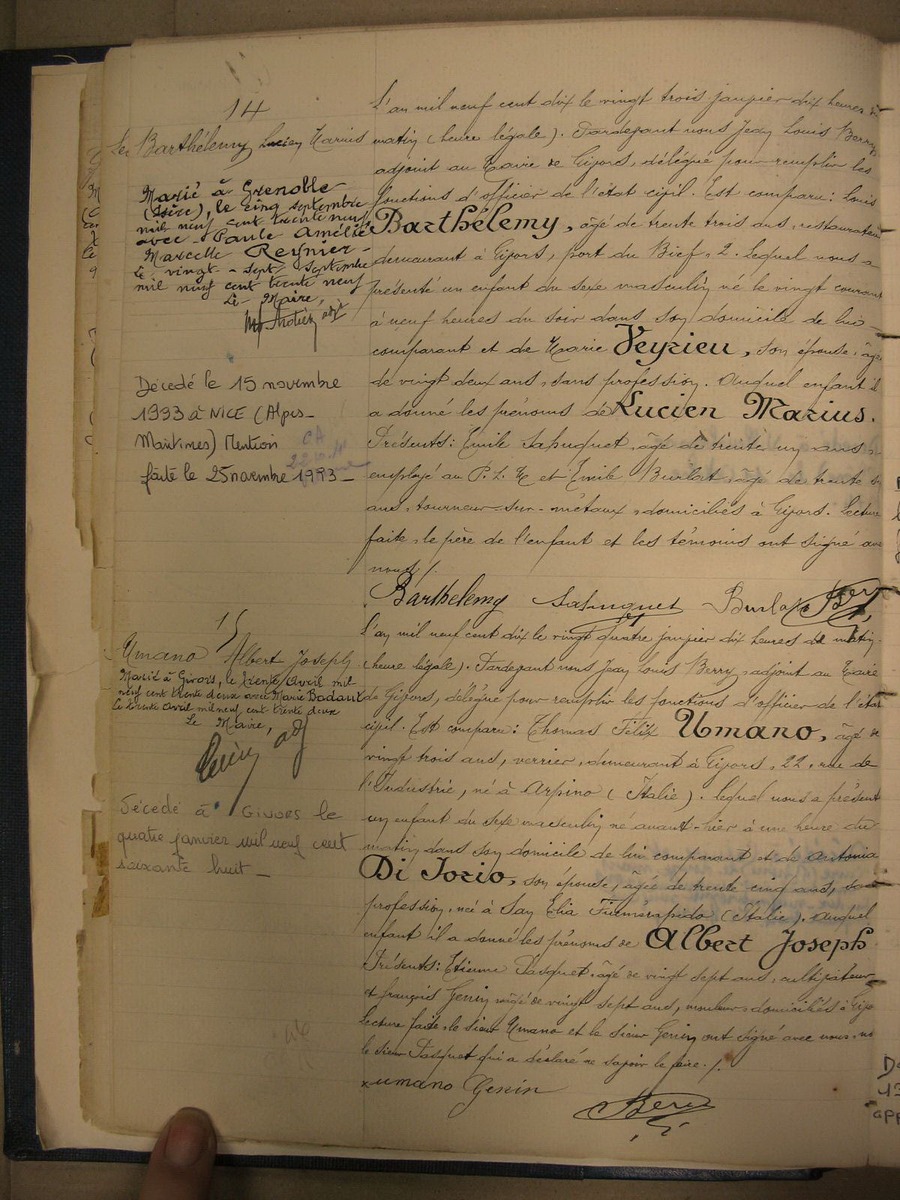 14
Barthélemy Lucien Marius
Marié à Grenoble
(Isère), le cinq septembre
mil neuf cent trente neuf
avec Paule Amélie
Marcelle Reynier -
Le vingt-sept septembre
mil neuf cent trente neuf
Le Maire,
adjt
Décédé le 15 novembre
1993 à NICE (Alpes-
Maritimes) Mention
faite le 25 novembre 1993 -
L'an mil neuf cent dix le vingt trois janvier dix heures
matin (heure légale). Pardevant nous Jean Louis Berry
adjoint au Maire de Givors, délégué pour remplir les
fonctions d'officier de l'état civil. Est comparu: Louis
Barthélemy, âgé de trente trois ans, restaurateur
demeurant à Givors, port du Bief, 2. Lequel nous a
présenté un enfant du sexe masculin né le vingt courant
à neuf heures du soir dans son domicile de lui
comparant et de Marie Veyrieu, son épouse, âgée
de vingt deux ans, sans profession. Auquel enfant il
a donné les prénoms de Lucien Marius.
Présents: Emile Sahuquet, âgé de trente un ans,
employé au P. L. M et Emile Burlat, âgé de trente
ans, tourneur-sur-métaux, domiciliés à Givors. Lecture
faite, le père de l'enfant et les témoins ont signé avec
nous ./.
Barthélemy Sahuquet Burlat Berry
15
Umano Albert Joseph
Marié à Givors, le trente Avril mil-
neuf cent trente deux avec Marie Badaut
Le trente avril mil neuf cent trente deux
Le Maire,
adj
Décédé à Givors le
quatre janvier mil neuf cent
soixante huit -
L'an mil neuf cent dix le vingt quatre janvier dix heures du matin
(heure légale). Pardevant nous Jean Louis Berry, adjoint au Maire
de Givors, délégué pour remplir les fonctions d'officier de l'état
civil. Est comparu: Thomas Félix Umano, âgé de
vingt trois ans, verrier, demeurant à Givors, 22, rue de
l'Industrie, né à Arpino (Italie). Lequel nous a présenté
un enfant du sexe masculin né avant-hier à une heure du
matin dans son domicile de lui comparant et de Antonia
Di Iorio, son épouse, âgée de trente cinq ans, sans
profession, née à San Elia Fiumerapido (Italie). Auquel
enfant il a donné les prénoms de Albert Joseph
Présents: Etienne Pasquet, âgé de vingt sept ans, cultivateur
et françois Genin, âgé de vingt sept ans, mouleur, domiciliés à Givors
Lecture faite, le sieur Umano et le sieur Genin ont signé avec nous, non
le sieur Pasquet qui a déclaré ne savoir le faire ./.
umano Genin
Berry